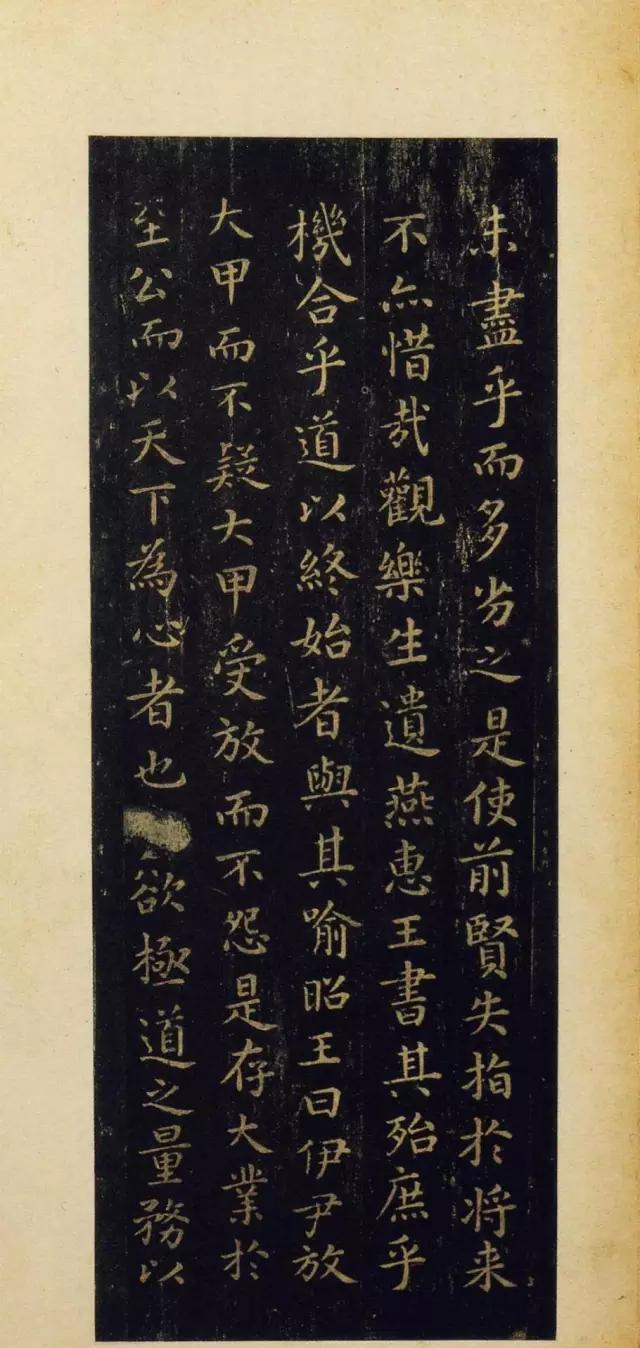 未盡乎而多劣之是使前賢失指於將来
不亦惜哉觀樂生遺燕惠王書其殆庶乎
機合乎道以終始者與其喻昭王曰伊尹放
大甲而不疑大甲受放而不怨是存大業於
至公而以天下為心者也欲極道之量務以